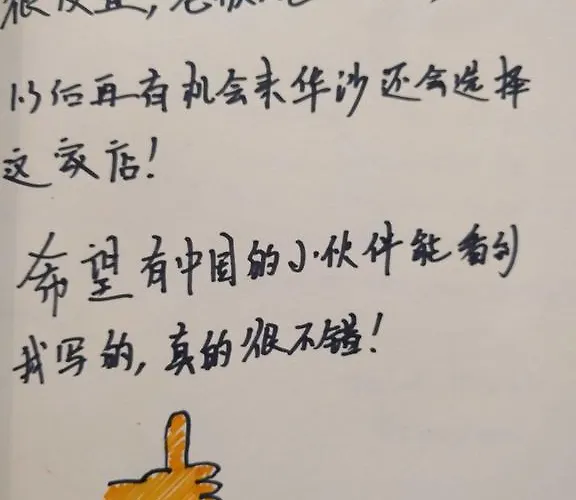 很
以后再有机会来华沙还会选择
这家店！
希望有中国的小伙伴能看到
我写的，真的很不错！